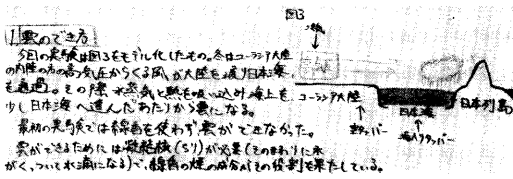 図3
1.雲のでき方
今回の実験は図3をモデル化したもの。冬はユーラシア大陸
の内陸の方の高気圧からくる風が大陸を渡り日本海
を通過。その際水蒸気と熱を吸い込み海上を
少し日本海へ進んだあたりから雲になる。
最初の実験では線香を使わず雲ができなかった。
雲ができるためには凝結核(ちり)が必要(そのまわりに水
がくっついて水滴になる)で、線香の煙の成分がその役割を果たしている。
ユーラシア大陸
日本海
日本列島